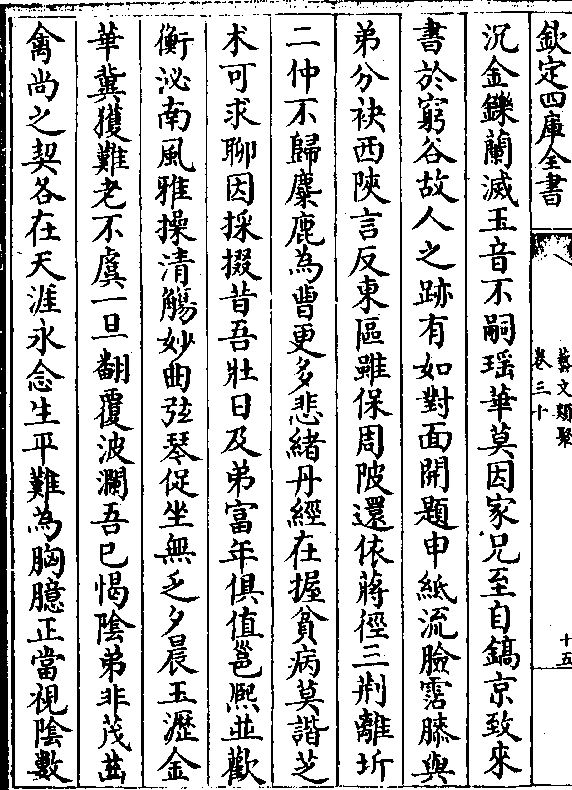 欽定四庫全書
藝文類聚
卷三十
十五
沉金鑠蘭滅玉音不嗣瑶華莫因家兄至自鎬京致來
書於窮谷故人之跡有如對面開題申紙流臉霑膝與
弟分袂西陝言反東區雖保周陂還依蔣徑三荆離圻
二仲不歸麋鹿為曹更多悲緒丹經在握貧病莫諧芝
术可求聊因採掇昔吾壯日及弟富年俱值邕熙並歡
衡泌南風雅操清觴妙曲弦琴促坐無乏夕晨玉瀝金
華冀獲難老不虞一旦翻覆波瀾吾已愒陰弟非茂齒
禽尚之契各在天涯永念生平難為胸臆正當視陰數